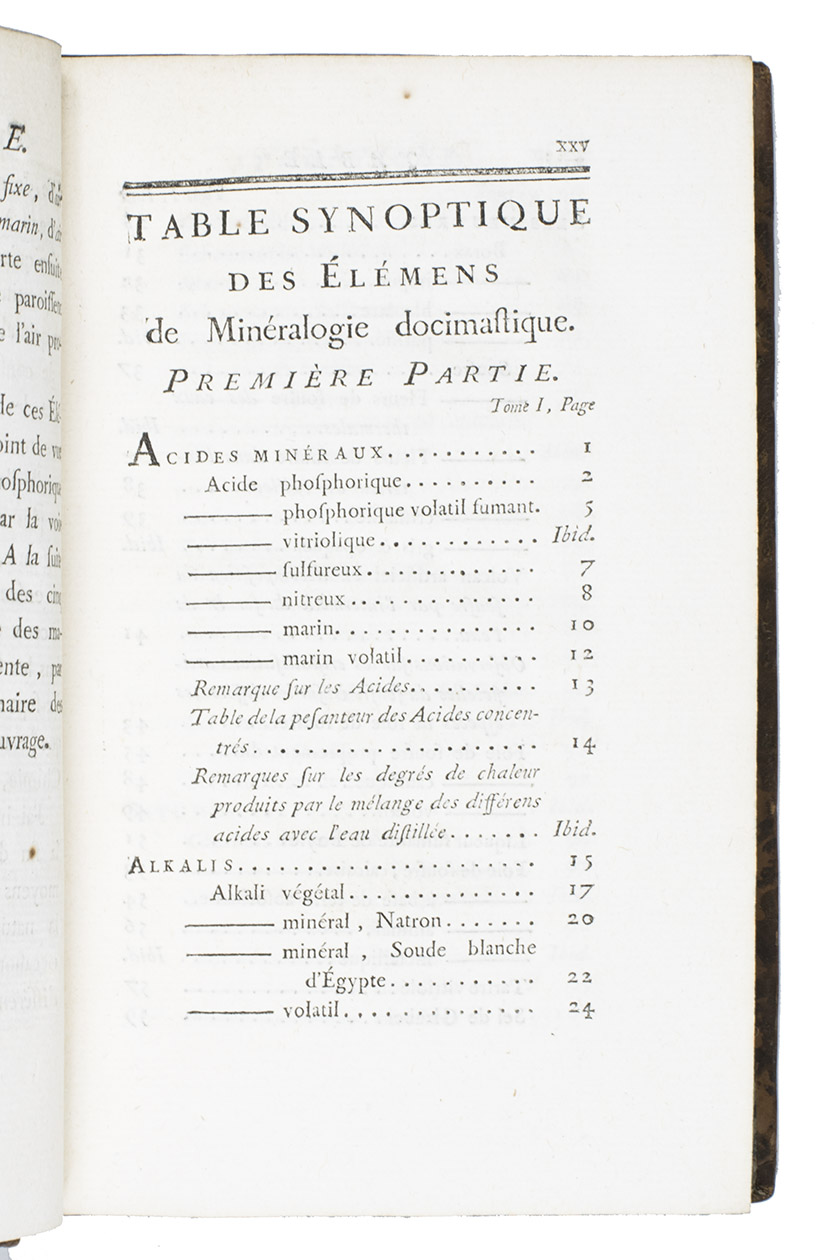 E.
fixe, d'
marin, d'
rte ensuite
paroissent
l'air
de ces
oint de vue
osphorique
ar la voie
A la suite
des cinq
des
ente, par
naire des
uvrage.
XXV
TABLE SYNOPTIQUE
DES ÉLÉMENS
de Minéralogie docimaſtique.
PREMIÈRE PARTIE.
Tome I, Page
ACIDES MINÉRAUX........... 1
Acide phoſphorique.......... 2
——— phoſphorique volatil fumant. 5
——— vitriolique............ Ibid.
——— ſulfureux............. 7
——— nitreux.............. 8
——— marin............... 10
——— marin volatil.......... 12
Remarque ſur les Acides.......... 13
Table de la peſanteur des Acides concen-
trés..................... 14
Remarques ſur les degrés de chaleur
produits par le mélange des différens
acides avec l'eau diſtillée....... Ibid.
ALKALIS...................... 15
Alkali végétal.............. 17
——— minéral, Natron....... 20
——— minéral, Soude blanche
d'Égypte........... 22
——— volatil.............. 24